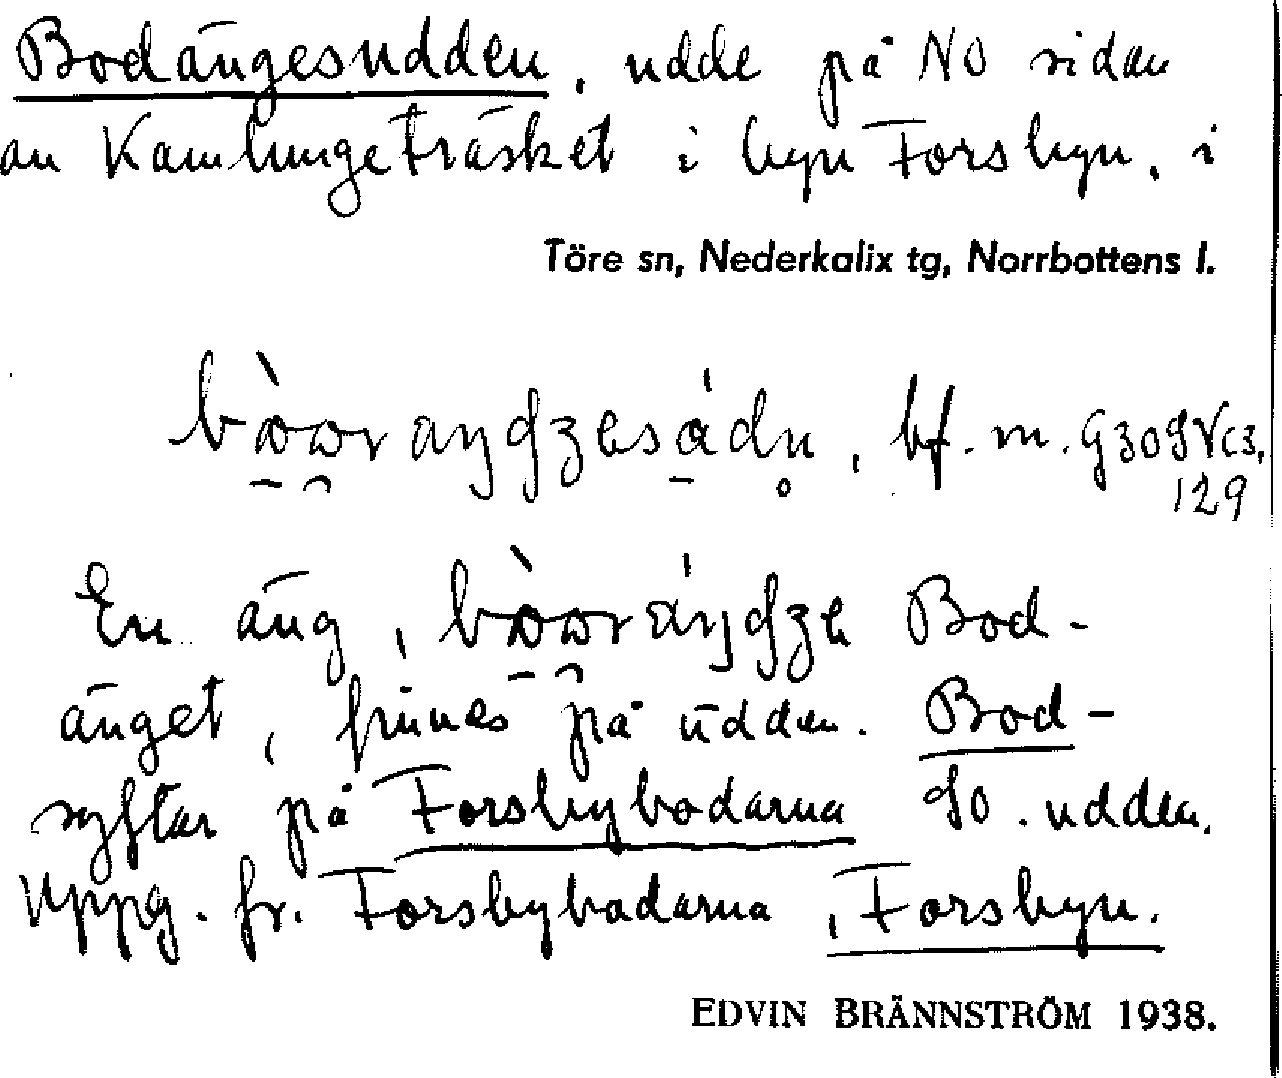 Bodängesudden, udde på NO sidan
av Kamlungeträsket i byn Forsbyn, i
Töre sn, Nederkalix tg, Norrbottens l.
bf. m.
129
En äng, Bod-
änget, finnes på udden. Bod-
syftar på Forsbybodarna SO. udden.
Uppg. fr. Forsbybodarna, Forsbyn.
EDVIN BRÄNNSTRÖM 1938.